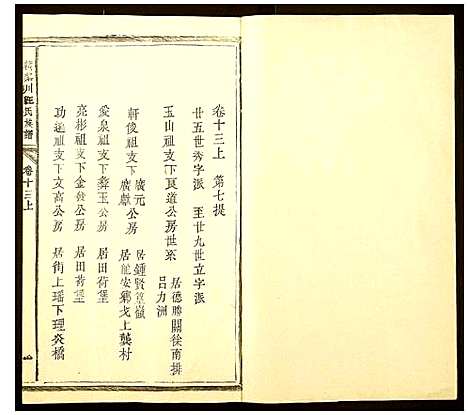 卷十三上 第七提
廿五世秀字派 至廿九世立字派
玉山祖支下良道公房世系 居德勝關徐南損
呂力洲
軒俊祖支下廣元公房 居鍾賢
廣獻 居龍安鄉戈上龔村
愛泉祖支下舜玉公房 居田荷堡
亮彬祖支下金良公房 居田荷堡
功達祖支下文高公房 居街上瑶下理炎橋
川汪氏族譜
卷十三上